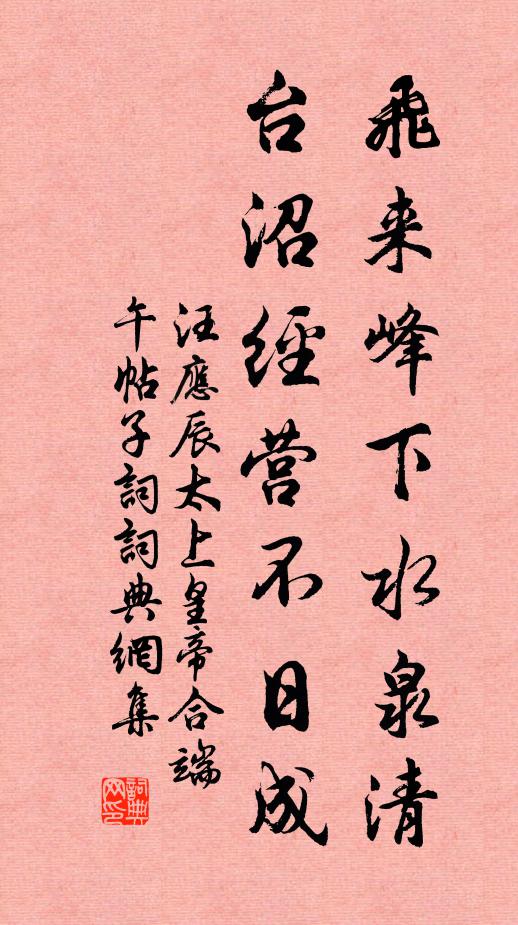 飛来峰下水泉清
台沼經营不日成
汪應辰太上皇帝合端
午帖子詞詞典網集
詞典
网印